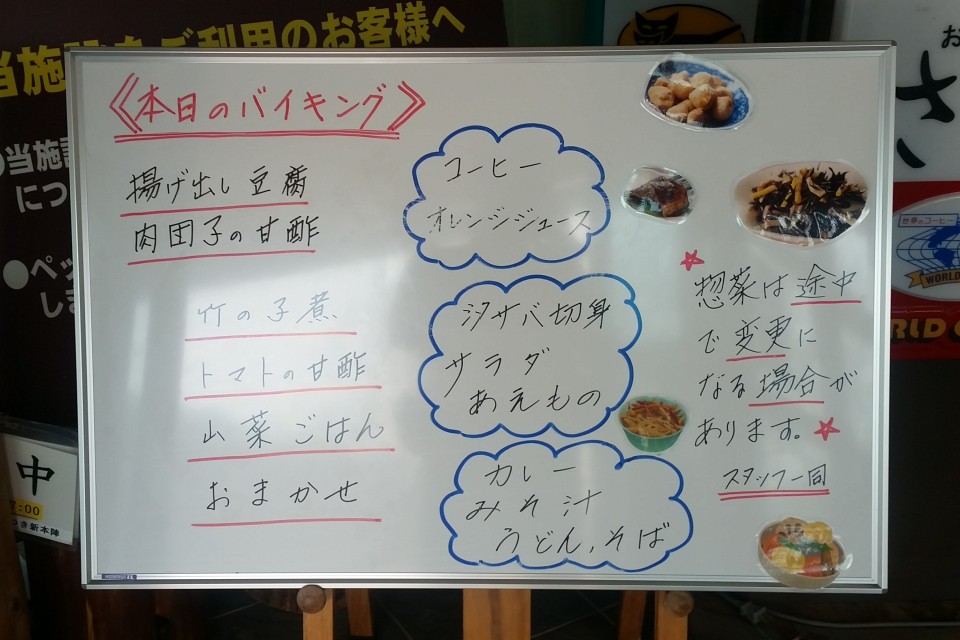 当施設をご利用のお客様へ
当施設
につ
●ペッ
しま
《本日のバイキング》
揚げ出し豆腐
肉団子の甘酢
竹の子煮
トマトの甘酢
山菜ごはん
おまかせ
コーヒー
オレンジジュース
汐サバ切身
サラダ
あえもの
カレー
みそ汁
うどん,そば
☆惣菜は途中
で変更に
なる場合が
あります。☆
スタッフ一同
中
7:00
つき新本陣
お
さ
世界のコーヒー
WORLD
RLD